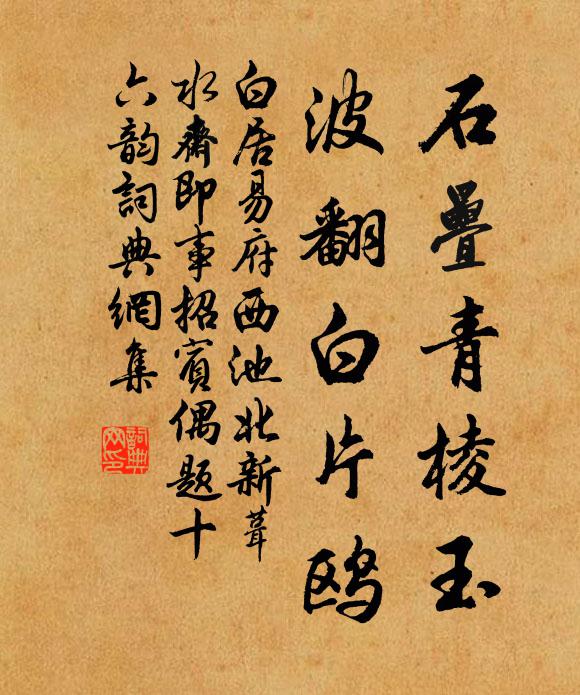 石疊青棱玉
波翻白片鸥
白居易府西池北新葺
水齋即事招賓偶题十
六韵詞典網集
詞典
网印